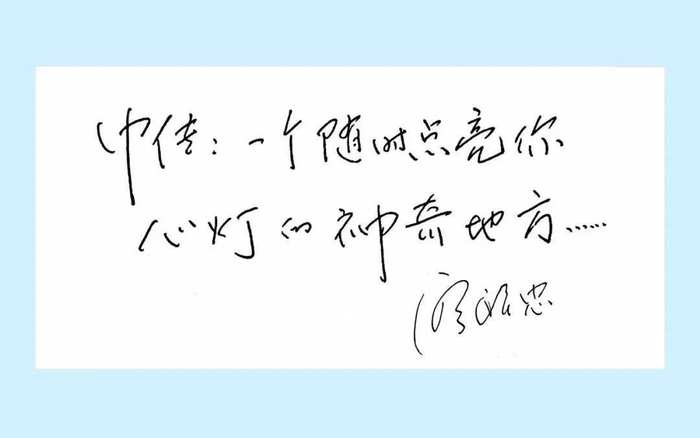 中传：一个随时点亮你
心灯的神奇地方……
廖祥忠